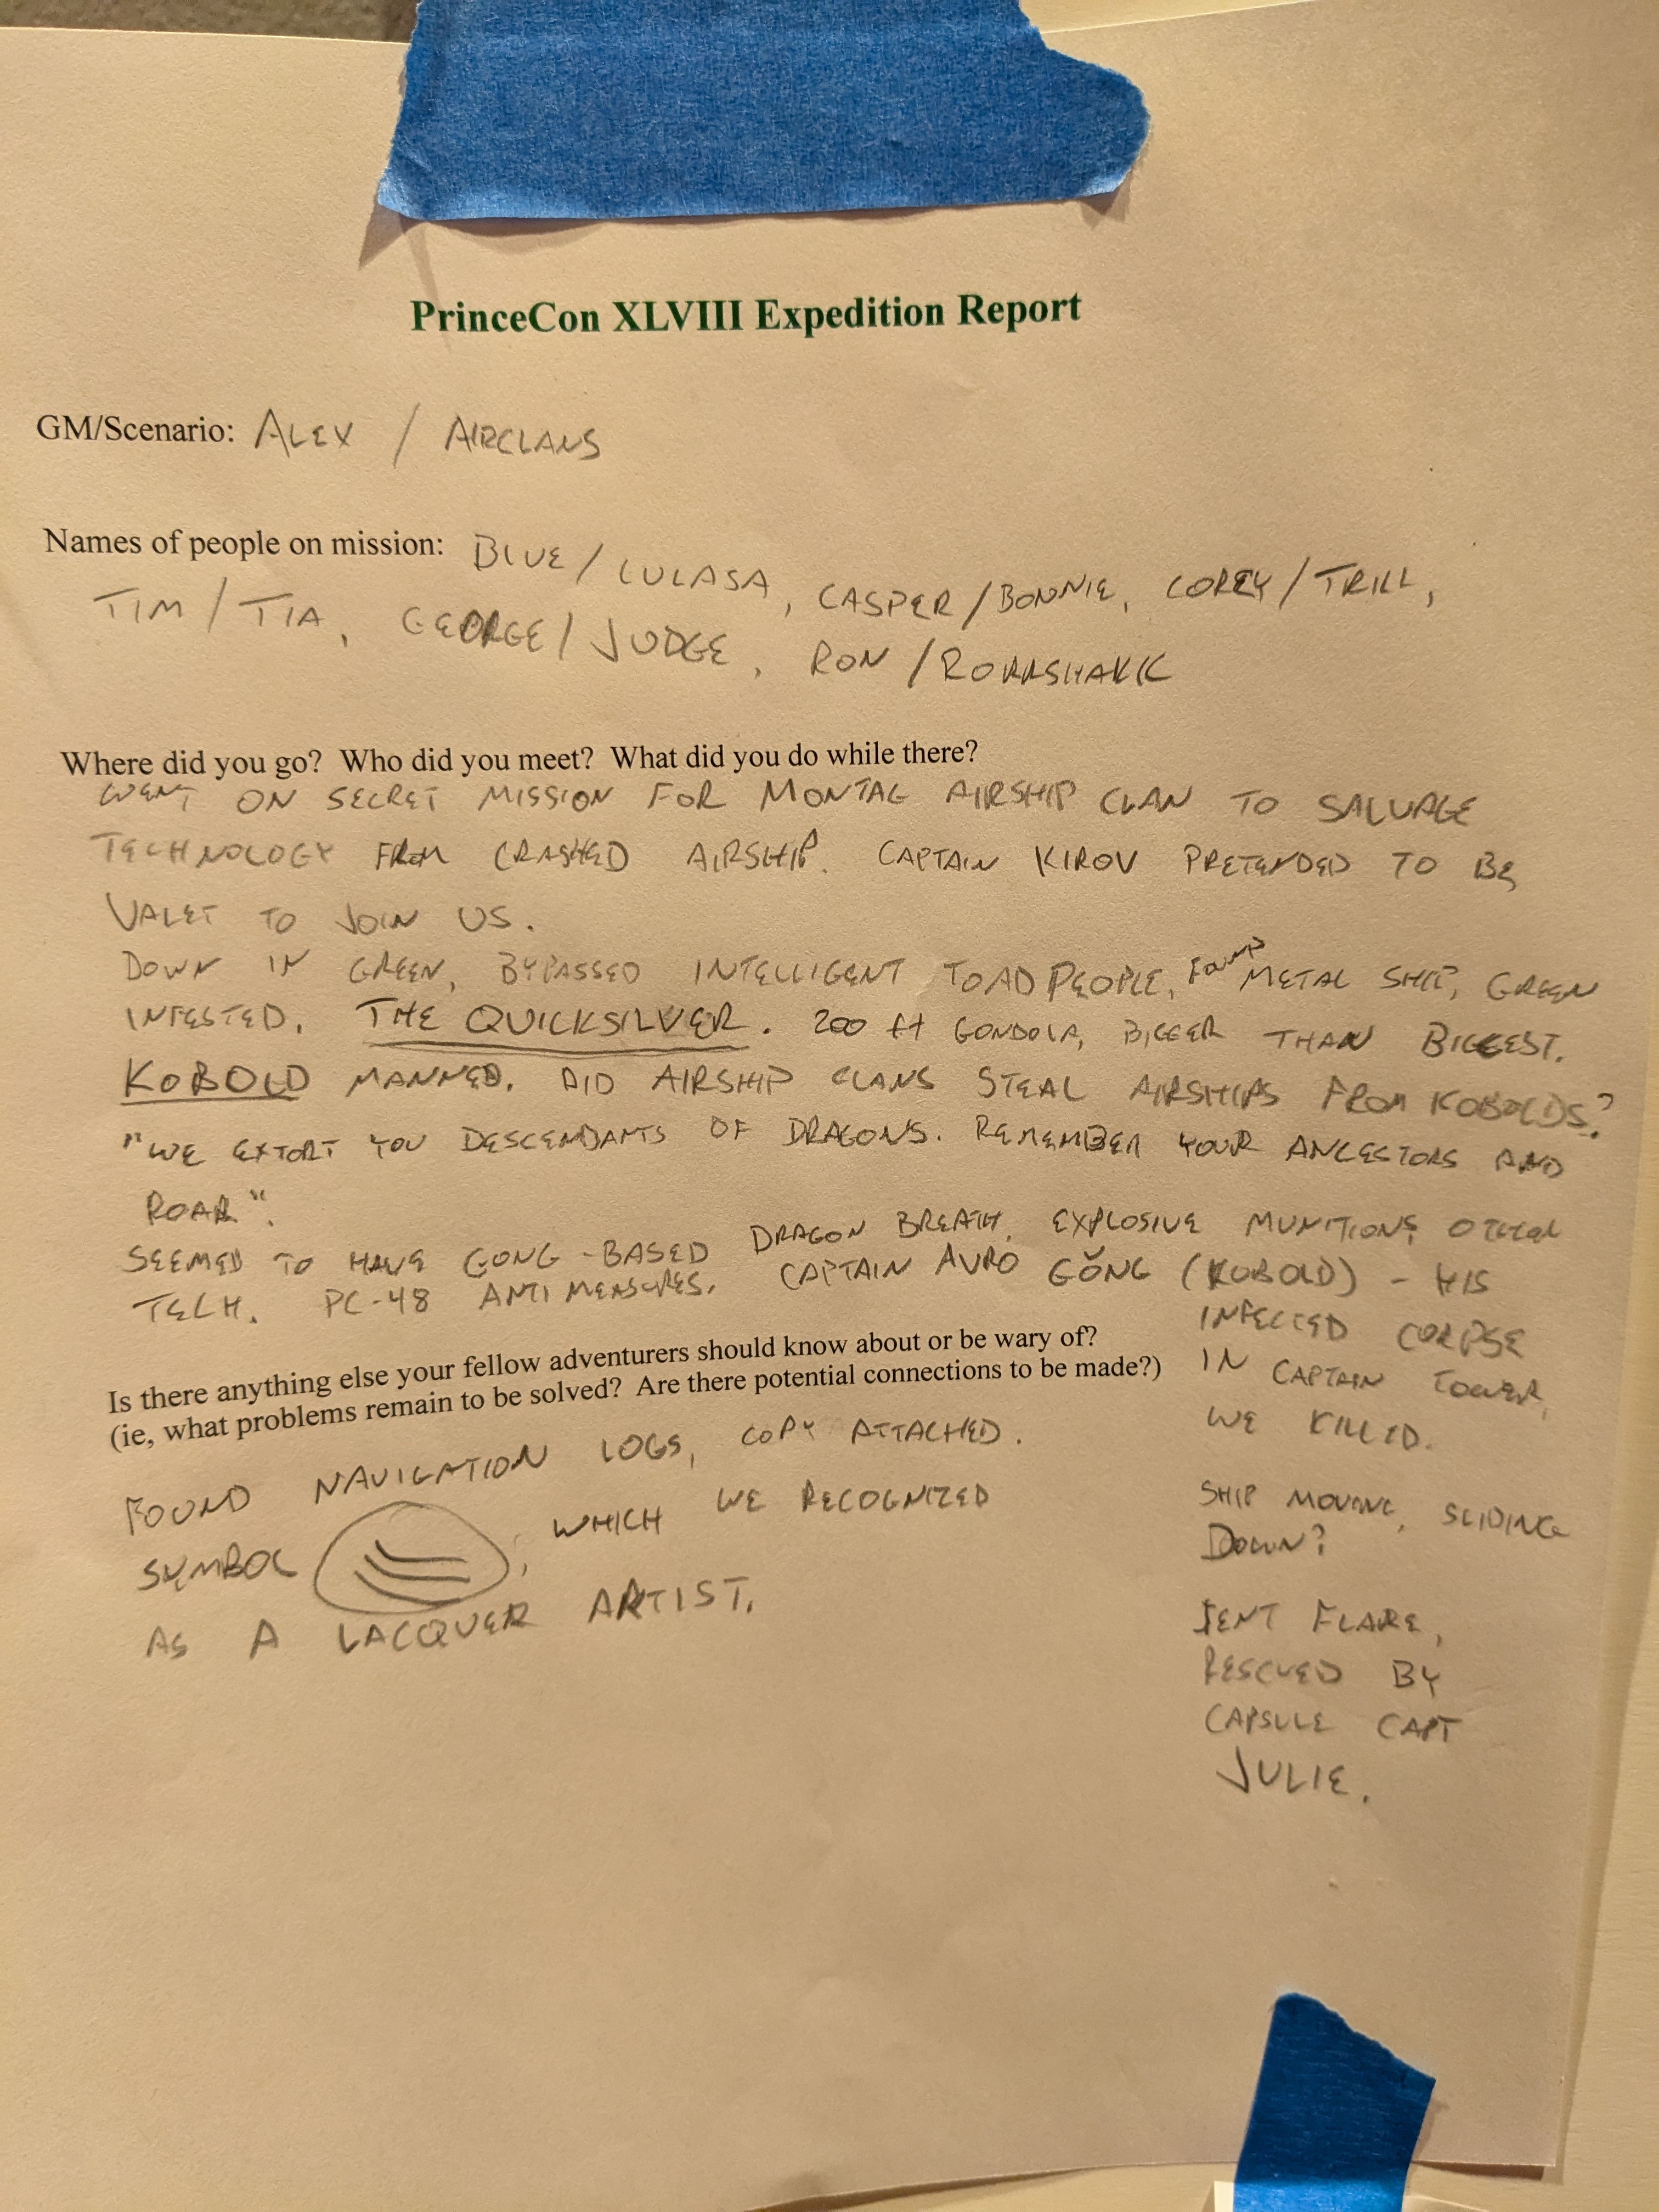 PrinceCon XLVIII Expedition Report
GM/Scenario: ALEX / AIRCLANS
Names of people on mission: BLUE / LULASA, CASPER / BONNIE, COREY / TRILL,
TIM / TIA, GEORGE / JUDGE, RON / RORRSHAKK
Where did you go? Who did you meet? What did you do while there?
WENT ON SECRET MISSION FOR MONTAG AIRSHIP CLAN TO SALVAGE
TECHNOLOGY FROM CRASHED AIRSHIP. CAPTAIN KIROV PRETENDED TO BE
VALET TO JOIN US.
DOWN IN GREEN, BYPASSED INTELLIGENT TOAD PEOPLE, FOUND METAL SHIP, GREEN
INFESTED. THE QUICKSILVER. 200 ft GONDOLA, BIGGER THAN BIGGEST.
KOBOLD MANNED. DID AIRSHIP CLANS STEAL AIRSHIPS FROM KOBOLDS?
"WE EXTORT YOU DESCENDANTS OF DRAGONS. REMEMBER YOUR ANCESTORS AND
ROAR".
SEEMED TO HAVE GONG-BASED DRAGON BREATH, EXPLOSIVE MUNITIONS, OTHER
TECH. PC-48 ANTI MEASURES. CAPTAIN AVRO GŎNG (KOBOLD) - HIS
INFECTED CORPSE
IN CAPTAIN TOWER,
WE KILLED.
SHIP MOVING, SLIDING
DOWN?
SENT FLARE,
RESCUED BY
CAPSULE CAPT
JULIE.
Is there anything else your fellow adventurers should know about or be wary of?
(ie, what problems remain to be solved? Are there potential connections to be made?)
FOUND NAVIGATION LOGS, COPY ATTACHED.
SYMBOL , WHICH WE RECOGNIZED
AS A LACQUER ARTIST.